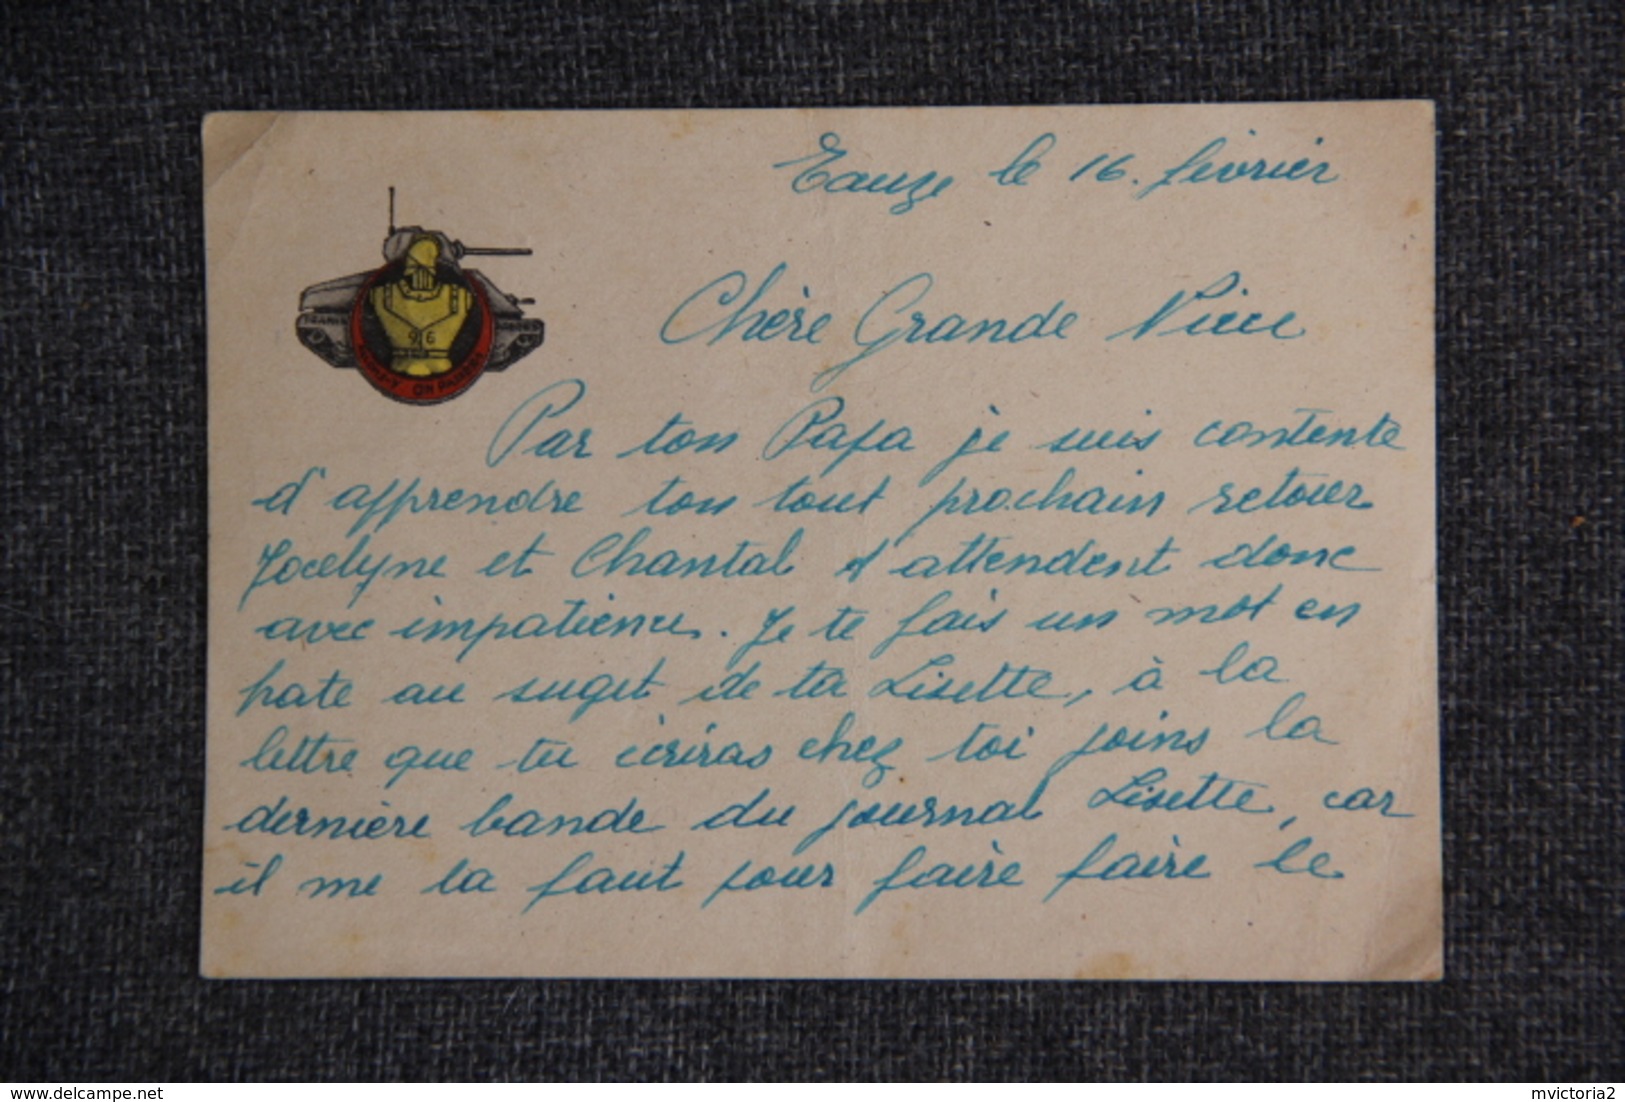 Eauze le 16. février
96
ON PASSE
Chère Grande Nièce
Par ton Papa je suis contente
d'apprendre ton tout prochain retour
Jocelyne et Chantal t'attendent donc
avec impatience. Je te fais un mot en
hate au suget de ta Lisette, à la
lettre que tu écriras chez toi joins la
dernière bande du journal Lisette, car
il me la faut pour faire faire le
delcampe.net
mvictoria2